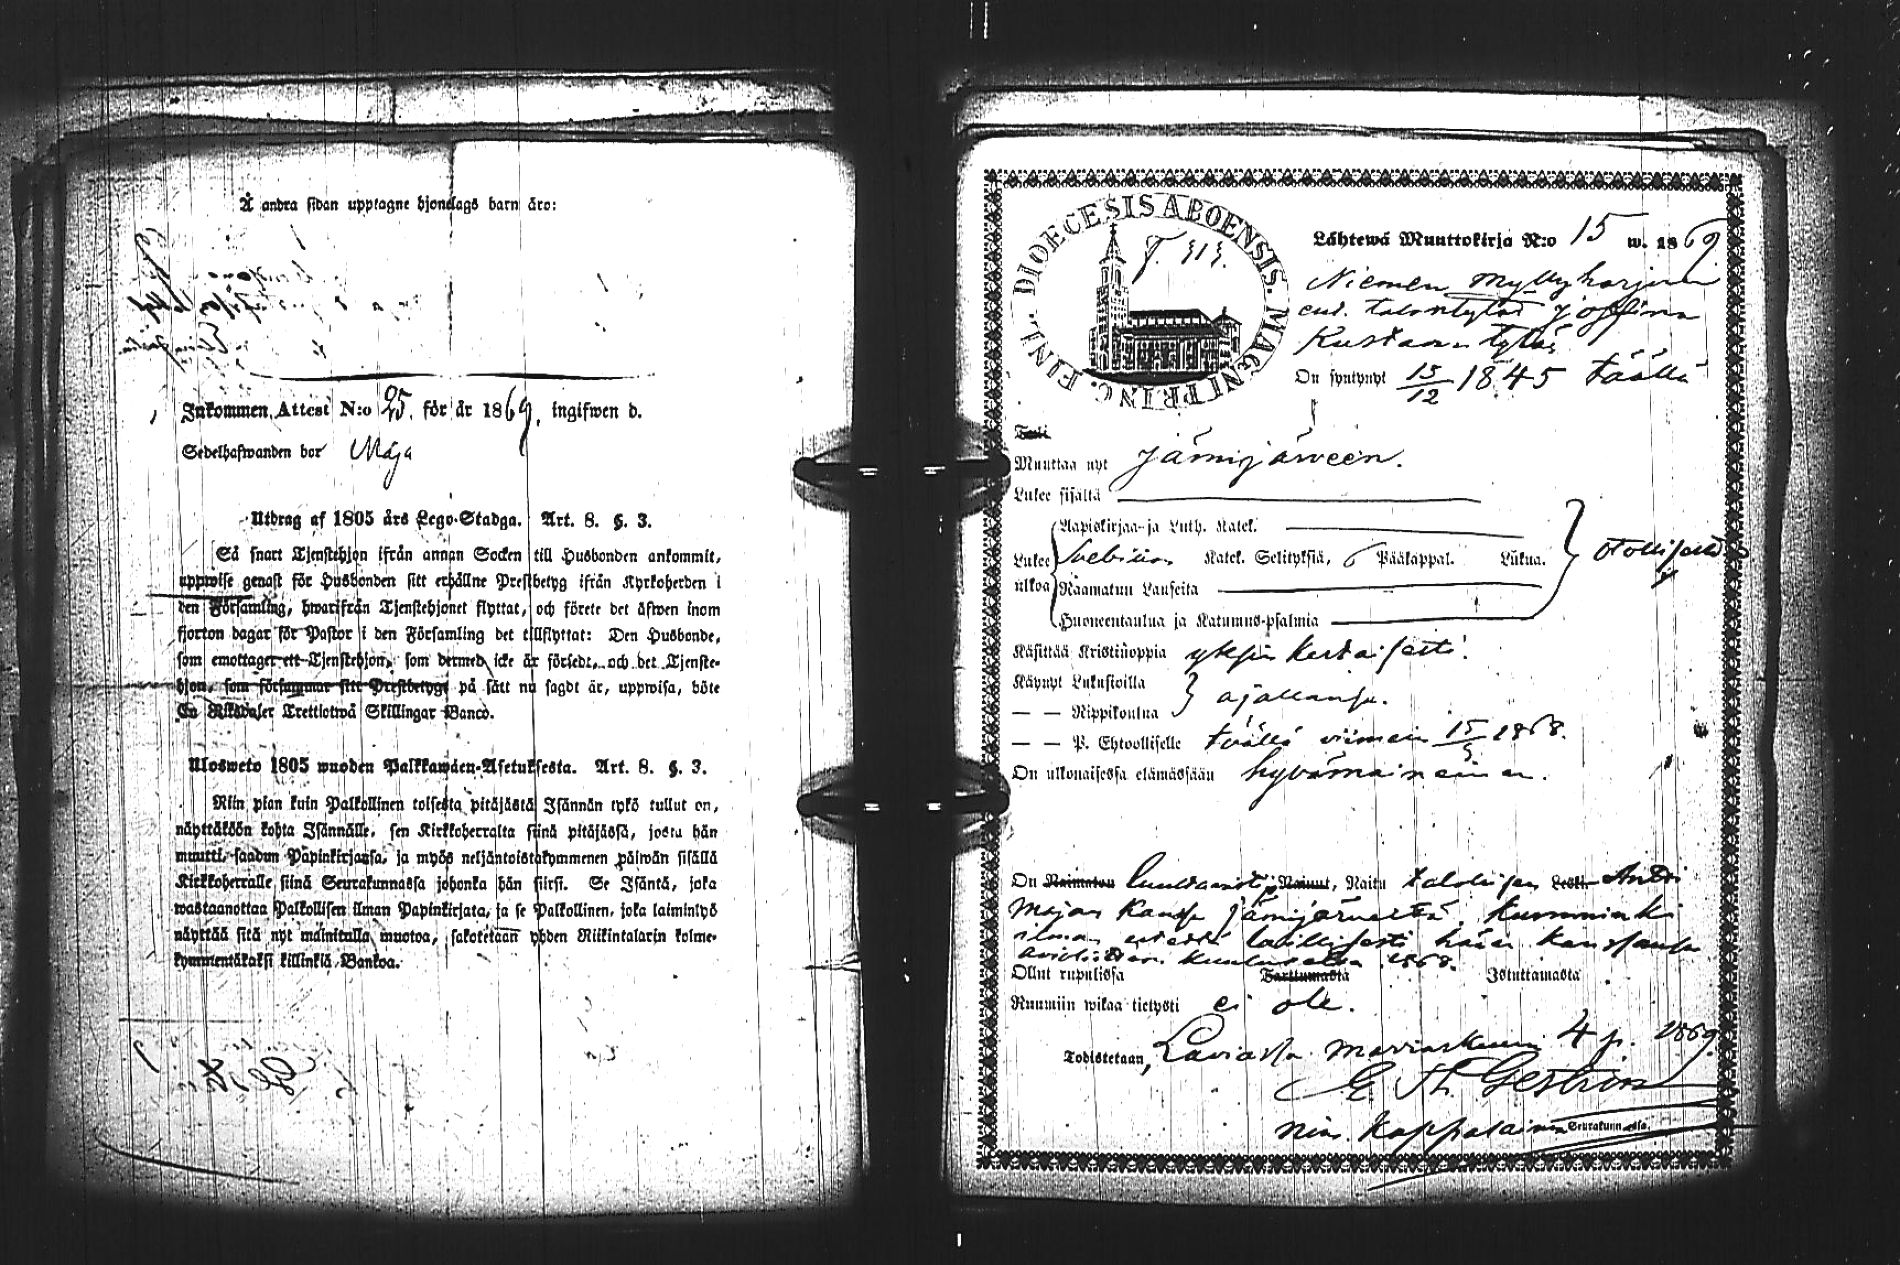 Å andra sidan upptagne hjonelags barn äro:
Inkommen Attest N:o 25. för år 1869. ingifwen d.
Sedelhafwanden bor Mäga
Utdrag af 1805 års Lego-Stadga. Art. 8. §. 3.
Så snart Tjenstehjon ifrån annan Socken till Husbonden ankommit,
uppwise genast för Husbonden sitt erhållne Prestbetyg ifrån Kyrkoherden i
den Församling, hwarifrån Tjenstehjonet flyttat, och förete det äfwen inom
fjorton dagar för Pastor i den Församling det tillflyttat: Den Husbonde,
som emottager ett Tjenstehjon, som dermed icke är försedt, och det Tjenste-
hjon, som försummar sitt Prestbetyg på sätt nu sagdt är, uppwisa, böte
En Riksdaler Trettiotwå Skillingar Banco.
Ulosweto 1805 wuoden Palkkawäen-Asetuksesta. Art. 8. §. 3.
Niin pian kuin Palkollinen toisesta pitäjästä Isännän tykö tullut on,
näyttäköön kohta Isännälle, sen Kirkkoherralta siinä pitäjässä, josta hän
muutti, saadun Papinkirjansa, ja myös neljäntoistakymmenen päiwän sisällä
Kirkkoherralle siinä Seurakunnassa johonka hän siirsi. Se Isäntä, joka
wastaanottaa Palkollisen ilman Papinkirjata, ja se Palkollinen, joka laiminlyö
näyttää sitä nyt mainitulla muotoa, sakotetaan yhden Riikintalarin kolme-
kymmentäkaksi killinkiä Bankoa.
DIOECESIS ABOENSIS. MAGNI PRINC. FINL.
Lähtewä Muuttokirja N:o 15 w. 1869.
Niemen Myllyharjun
ent. talontytär Josefina
Kustaan tytär
On syntynyt 15/12 1845 täällä
Tuli
Muuttaa nyt Jämijärween.
Lukee sisältä
Aapiskirjaa ja Luth. Katek.
Lukee Svebilion Katek. Selityksiä, 6 Pääkappal. Lukua. Otollisesti
ulkoa Raamatun Lauseita
Huoneentaulua ja Katumus-psalmia
Käsittää Kristinoppia yksinkertaisesti.
Käynyt Lukusioilla
— — Rippikoulua ajallansa.
— — P. Ehtoollisella täällä viimein 15/5 1868.
On ulkonaisessa elämässään hyvämaineinen.
On Naimaton luultavasti, Nainut, Naitu talollisen Leski Antti
Majan kanssa Jämijärveltä. Kumminki
ilman estettä laillisesti hänen kanssansa
avioliittoon kuulutettu 1868.
Ollut rupulissa Tarttumasta Istuttamasta
Ruumiin wikaa tietysti ei ole.
Todistetaan, Laviassa marraskuun 4 p. 1869
Seurakunnassa.